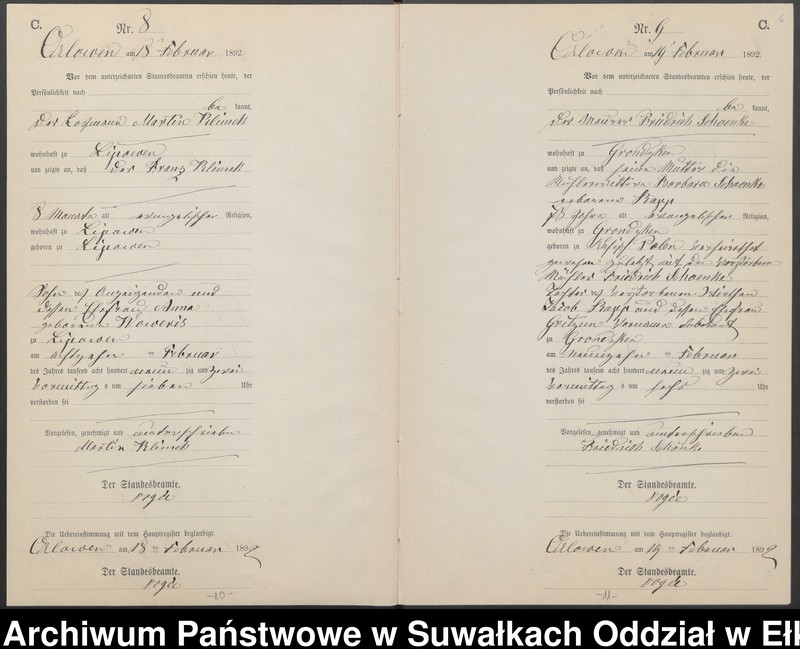 C.
Nr. 8
Orlowen am 18 Februar 1892.
Vor dem unterzeichneten Standesbeamten erschien heute, der
Persönlichkeit nach
be kannt,
der Losmann Martin Klimek
wohnhaft zu Lipowen
und zeigte an, daß der Franz Klimek
8 Monate alt evangelischer Religion,
wohnhaft zu Lipowen
geboren zu Lipowen
Sohn des Anzeigenden und
dessen Ehefrau Anna
geborene
zu Lipowen
am achtzehn ten Februar
des Jahres tausend acht hundert neun zig und zwei
Vormittag s um sieben Uhr
verstorben sei
Vorgelesen, genehmigt und unterschrieben
Martin Klimek
Der Standesbeamte.
Die Uebereinstimmung mit dem Hauptregister beglaubigt.
Orlowen am 18 ten Februar 1892
Der Standesbeamte.
-10-
C.
6
Nr. 9
Orlowen am 19 Februar 1892.
Vor dem unterzeichneten Standesbeamten erschien heute, der
Persönlichkeit nach
be kannt,
der Maurer Friedrich Schoenke
wohnhaft zu Grondzken
und zeigte an, daß seine Mutter die
Müllerwittwe Barbara Schoenke
geborene Rapp
73 Jahre alt evangelischer Religion,
wohnhaft zu Grondzken
geboren zu Polen verheirathet
gewesen zuletzt mit dem verstorbenen
Müller Friedrich Schoenke
Tochter des verstorbenen Wirthen
Jacob Rapp und dessen Ehefrau
zu Grondzken
am neunzehn ten Februar
des Jahres tausend acht hundert neun zig und zwei
Vormittag s um sechs Uhr
verstorben sei
Vorgelesen, genehmigt und unterschrieben
Friedrich Schönke
Der Standesbeamte.
Die Uebereinstimmung mit dem Hauptregister beglaubigt.
Orlowen am 19 ten Februar 1892
Der Standesbeamte.
-11-
Archiwum Państwowe w Suwałkach Oddział w Ełk